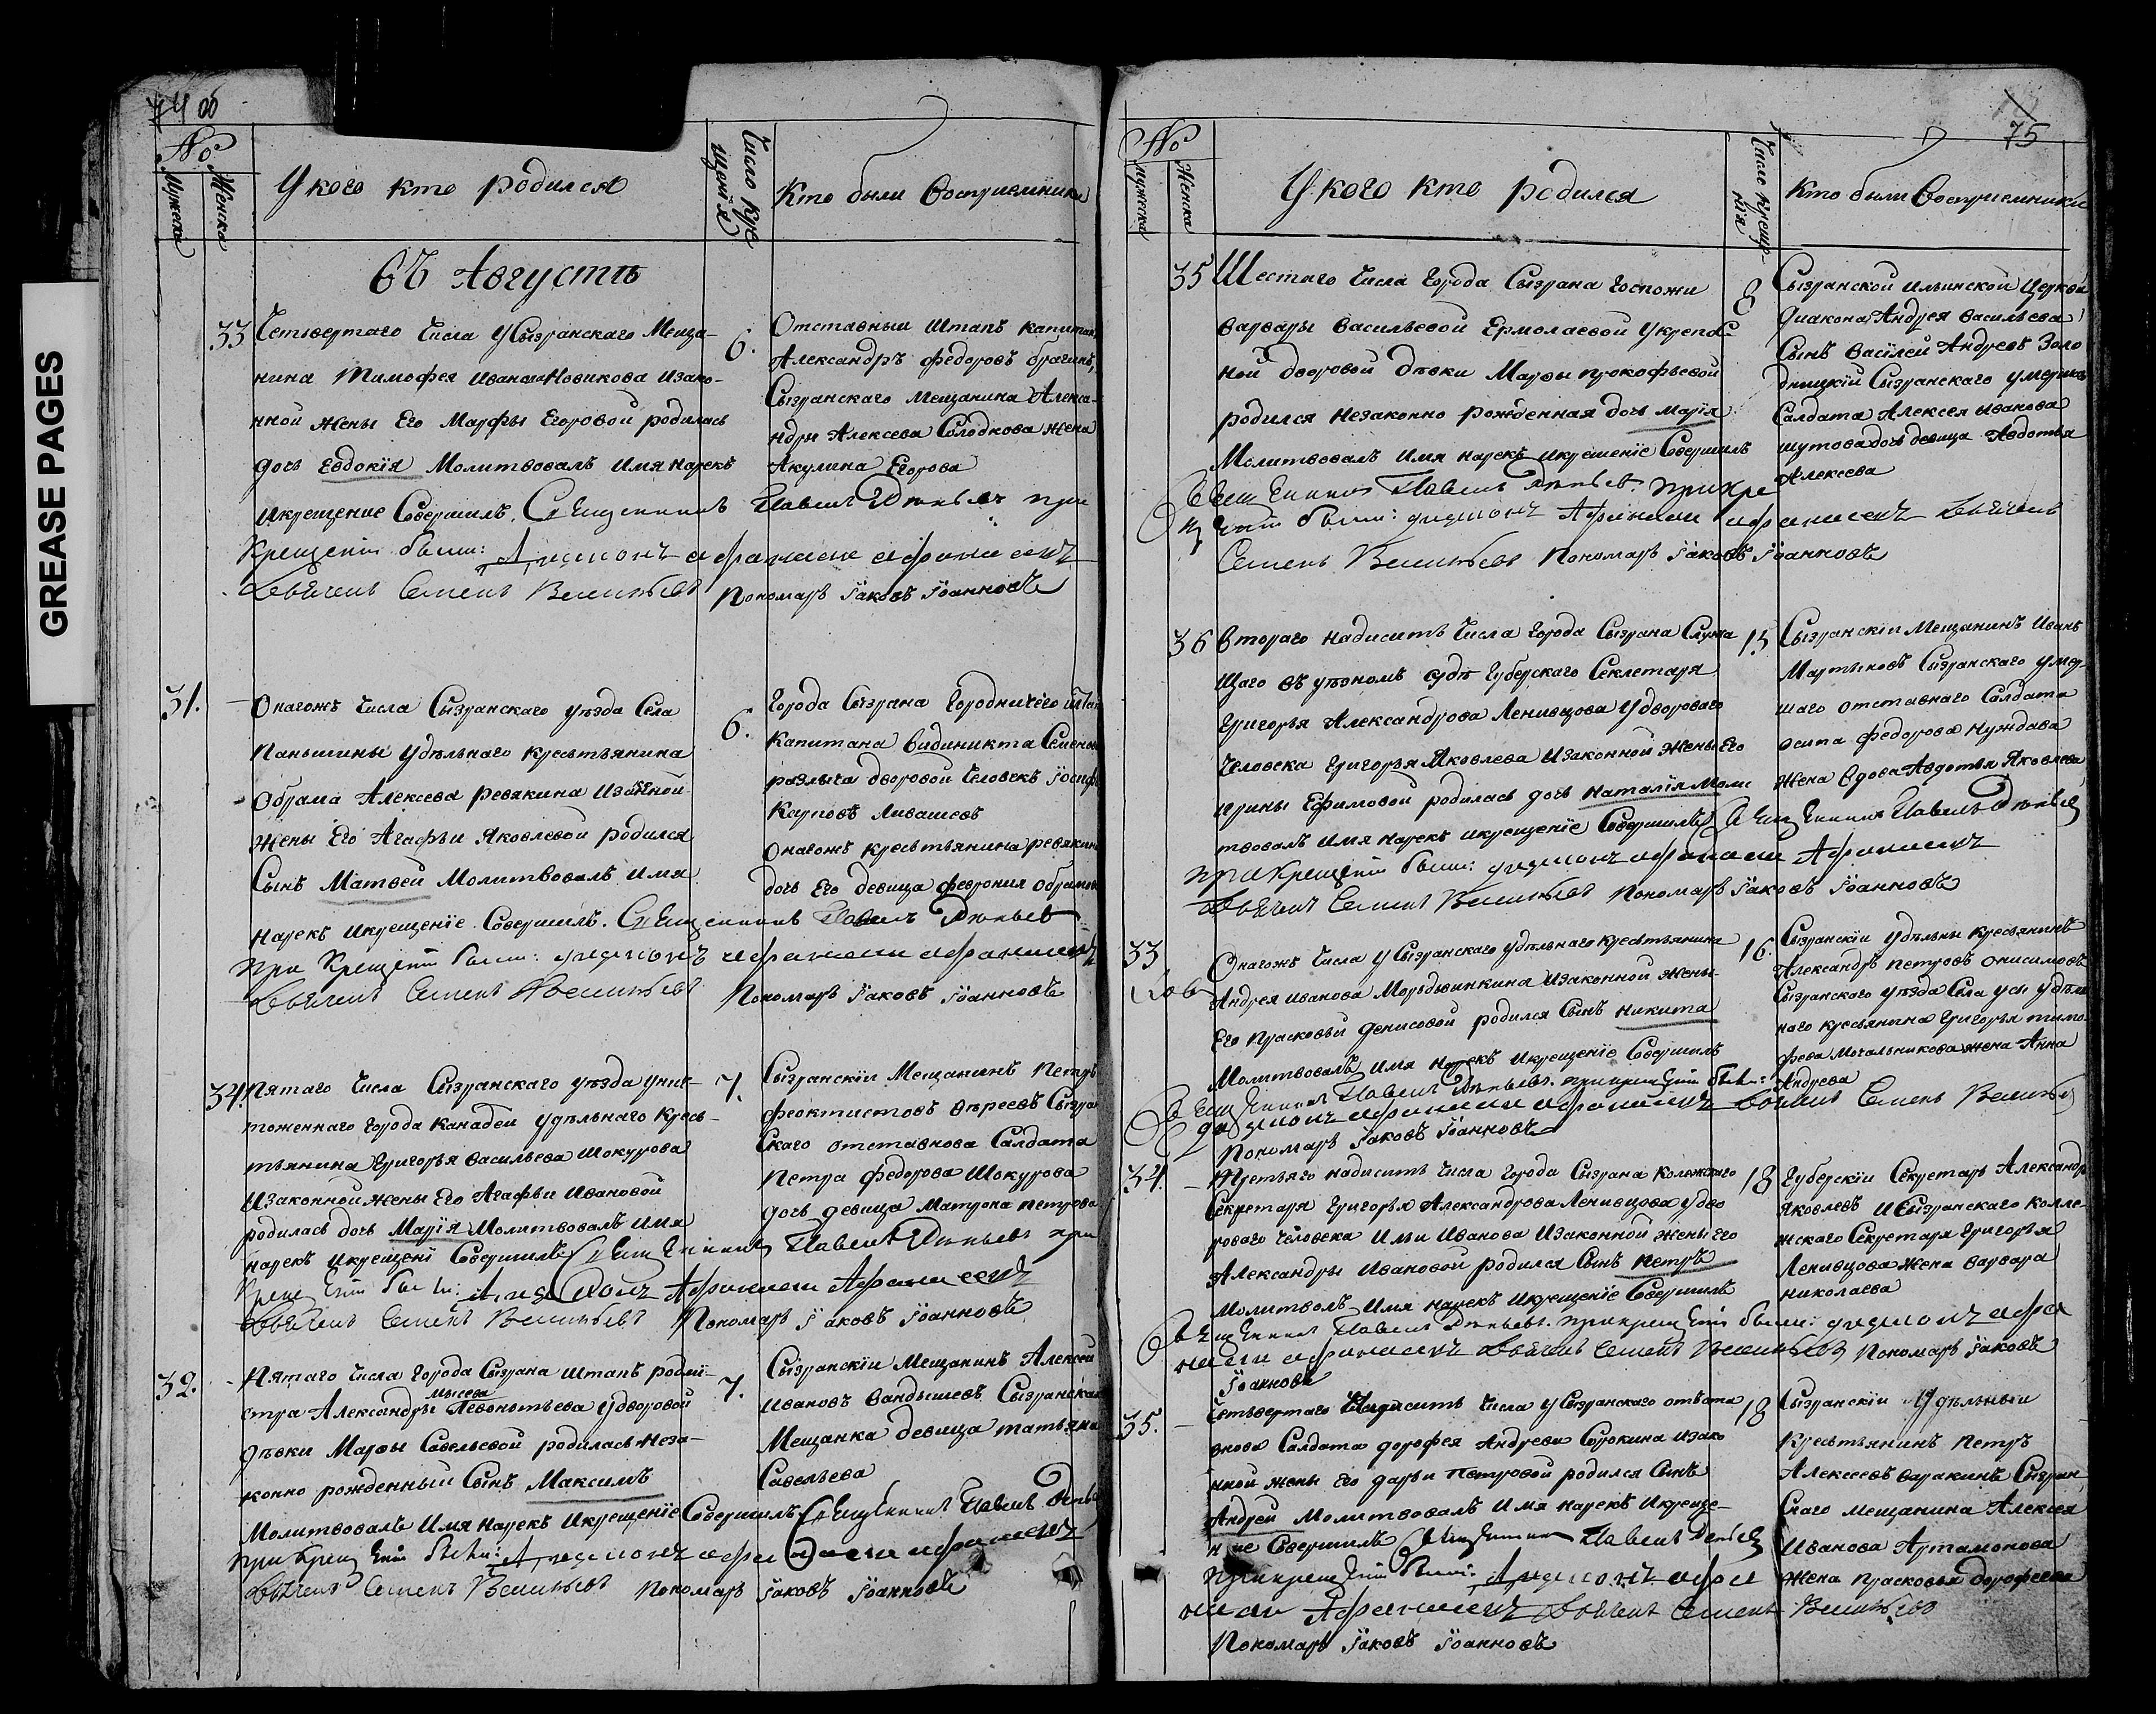 GREASE PAGES
74 об
№
Мужеска
Женска
У кого кто родился
Число кре
щения
Кто были восприемники
Въ Августѣ
33
Четвертаго числа у Сызранскаго Меща-
нина Тимофея Иванова Новикова изако-
нной жены Его Марфы Егоровой родилась
дочь Евдокия Молитвовалъ имя нарекъ
икрещение Совершилъ. Священникъ Павелъ при
крещении были: Диаконъ
Семенъ Васильевъ Пономарь Iаковъ Iоанновъ
6.
Отставный штапъ капитанъ
Александръ Федоровъ
Сызранскаго Мещанина Алекса-
ндры Алексева Солодкова жена
Акулина Егорова
31.
Онагожъ числа Сызранскаго уѣзда Села
Паньшины удѣльнаго кресьтьянина
Обрама Алексева Ревякина изаконной
жены Его Агафьи Яковлевой родился
Сынъ Матвей Молитвовалъ имя
нарекъ икрещенiе Совершилъ. Священникъ Павелъ
при крещении были: диаконъ
Семенъ Васильевъ Пономарь Iаковъ Iоанновъ
6.
Города Сызрана Городничего
Капитана Видиникта Семенова
дворовой человекъ Iосифъ
Карповъ Ливашевъ
Онагожъ кресьтьянина Ревякина
дочь Его девица Феврония Обрамова
34.
Пятаго числа Сызранскаго уѣзда унич-
тоженнаго города Канадеи удѣльнаго кресь-
тьянина Григорья Васильева Шокурова
изаконной жены Его Агафьи Ивановой
родилась дочь Марiя Молитвовалъ имя
нарекъ икрещенi Совершилъ Священникъ Павелъ при
крещении были: Диаконъ
Семенъ Васильевъ Пономарь Iаковъ Iоанновъ
7.
Сызранскiи Мещанинъ Петръ
Феоктистовъ Сызран
скаго отставнова Салдата
Петра Федорова Шокурова
дочь девица Матрона Петрова
32.
Пятаго числа города Сызрана штапъ ротми-
стра Александры Левонотьева удворовой
дѣвки Марфы Савельевой родилась неза-
конно рожденный Сынъ Максимъ
Молитвовалъ имя нарекъ икрещенiе Совершилъ Священникъ Павелъ
при крещении были: Диаконъ
Семенъ Васильевъ Пономарь Iаковъ Iоанновъ
7.
Сызранскiи Мещанинъ Алексей
Ивановъ Вандышевъ Сызранская
Мещанка девица Татьяна
Савельева
75
№
Мужеска
Женска
У кого кто родился
Число креще-
нiя
Кто были восприемники
35
Шестаго числа города Сызрана госпожи
Варвары Васильевой Ермолаевой укрепос
ной дворовой дѣвки Марфы Прокофьевой
родился незаконно рожденная дочь Марiя
Молитвовалъ имя нарекъ икрещенiе Совершилъ
Священникъ Павелъ при кре
щении были: диаконъ
Семенъ Васильевъ Пономарь Iаковъ Iоанновъ
8
Сызранской Ильинской церкви
диакона Андрея Васильева
Сынъ Василей Андреевъ Золо
дницкiй Сызранскаго умершаго
Салдата Алексея Иванова
Шутова дочь девица Авдотья
Алексева
36
Втораго надцсить числа города Сызрана Служа
щаго въ уѣзномъ судѣ Губерскаго Секлетаря
Григорья Александрова Ленивцова удвороваго
человека Григорья Яковлева изаконной жены Его
Ирины Ефимовой родилась дочь Наталiя Моли
твовалъ имя нарекъ икрещенiе Совершилъ Священникъ Павелъ
при крещении были: диаконъ
Семенъ Васильевъ Пономарь Iаковъ Iоанновъ
15
Сызранскiи Мещанинъ Иванъ
Мартыновъ Сызранскаго умер-
шаго отставнаго Салдата
Осипа Федорова Нуждава
жена вдова Авдотья Яковлева
33
Онагожъ числа у Сызранскаго удѣльнаго кресьтьянина
Андрея Иванова Морьдвинкина изаконной жены
Его Прасковьи Денисовой родился Сынъ Никита
Молитвовалъ имя нарекъ икрещенiе Совершилъ
Священникъ Павелъ при крещении были:
диаконъ Семенъ Васильевъ
Пономарь Iаковъ Iоанновъ
16.
Сызранскiи удѣльны кресьянинъ
Александръ Петровъ Онисимовъ
Сызранскаго уѣзда Села Усы удѣль
наго кресьянина Григорья Тимо-
фева Мочальникова жена Анна
Андреева
34.
Третьяго надцсить числа города Сызрана Колежскаго
Секретаря Григорья Александрова Ленивцова удво
роваго человека Ильи Иванова изаконной жены Его
Александры Ивановой родился Сынъ Петръ
Молитволъ имя нарекъ икрещенiе Совершилъ
Священникъ Павелъ при крещении были: диаконъ
Семенъ Васильевъ Пономарь Iаковъ
Iоанновъ
18
Губерскiи Секретарь Александръ
Яковлевъ и Сызранскаго Колле-
жскаго Секретаря Григорья
Ленивцова жена Варвара
Николаева
35.
Четьвертаго надцсить числа у Сызранскаго отьста
внова Салдата Дорофея Андреева Сорокина изако
нной жены Его Дарьи Петровой родился Сынъ
Андрей Молитвовалъ имя нарекъ икреще-
ние Совершилъ Священникъ Павелъ
при крещении были: Диаконъ
Семенъ Васильевъ
Пономарь Iаковъ Iоанновъ
18
Сызранскiи Удѣльныи
Кресьтьянинъ Петръ
Алексеевъ Варакинъ Сызран
скаго мещанина Алексея
Иванова Артамонова
жена Прасковья Дорофеева